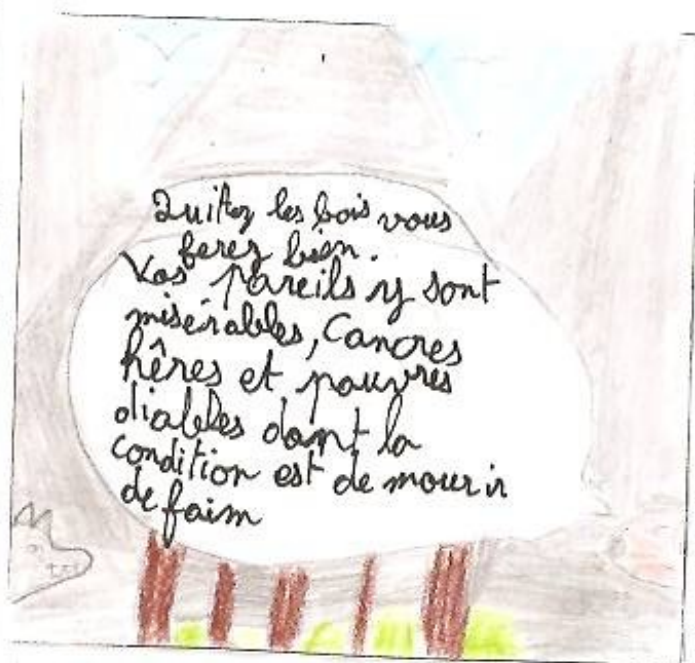 Quitez les bois vous
ferez bien.
Vos pareils y sont
misérables, Cancres
hêres et pauvres
diables dont la
condition est de mourir
de faim